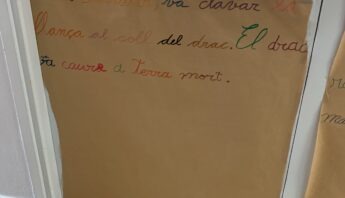 va clavar la
llança al coll del drac. El drac
va caure a Terra mort.